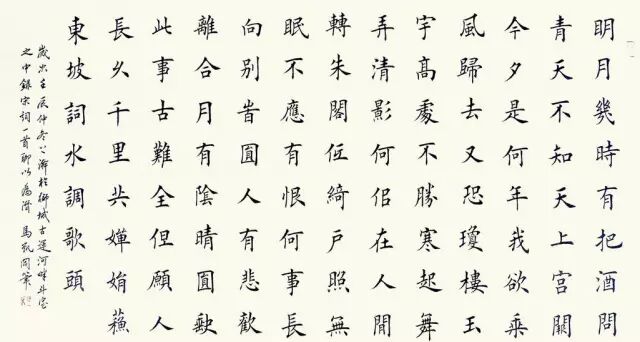 明月幾時有把酒問
青天不知天上宮闕
今夕是何年我欲乘
風歸去又恐瓊樓玉
宇高處不勝寒起舞
弄清影何佀在人間
轉朱閣低綺戶照無
眠不應有恨何事長
向別旹圓人有悲歡
離合月有陰晴圓缺
此事古難全但願人
長久千里共嬋娟蘇
東坡詞水調歌頭
歲次壬辰仲冬城古運河畔斗室
之中錄宋詞一首聊以為